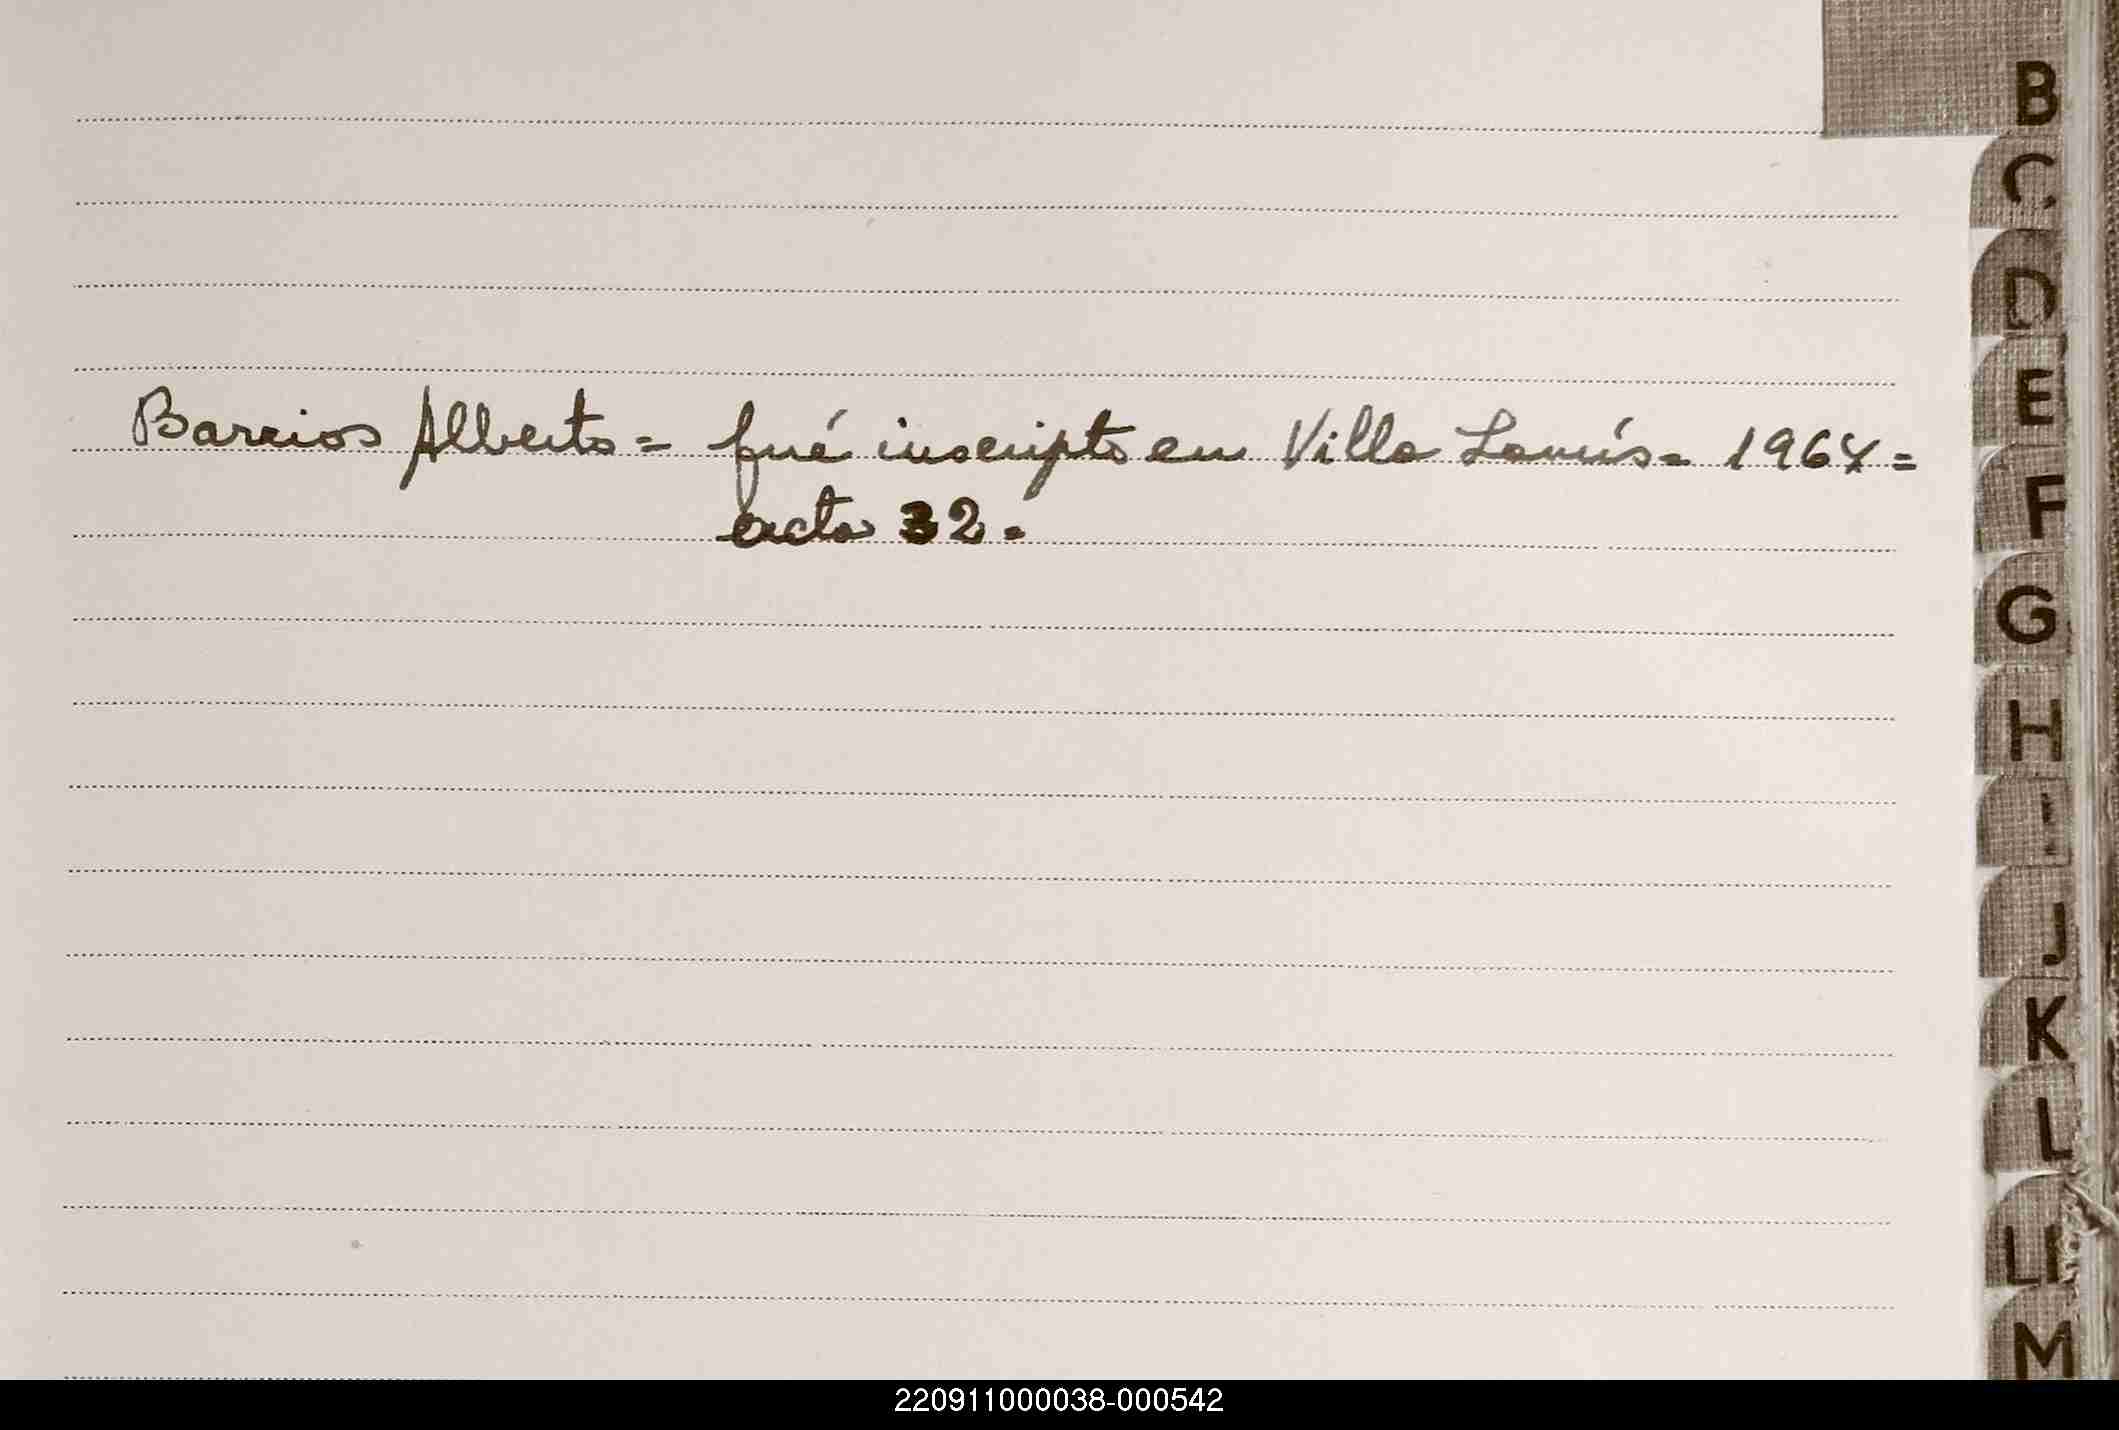 B
C
D
E
F
G
H
I
J
K
L
Ll
M
Barrios Alberto = fué inscripto en Villa Lanús = 1964 =
acta 32 =
220911000038-000542